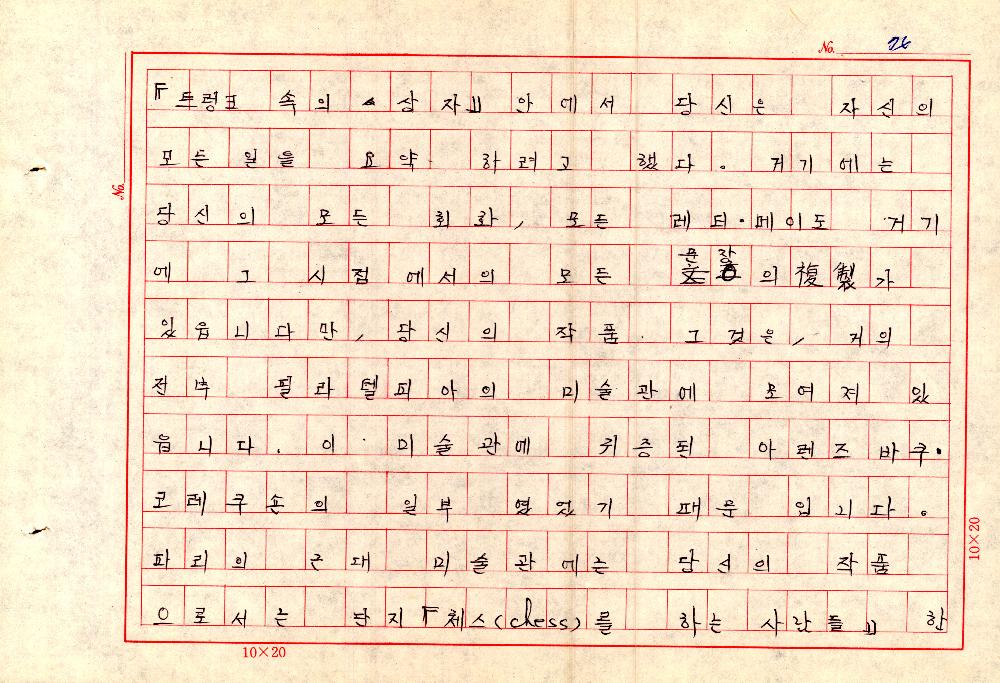 No. 76
『트렁크 속의 상자』 안에서 당신은 자신의
모든 일을 요약 하려고 했다. 거기에는
No.
당신의 모든 회화, 모든 레디·메이도 거기
에 그 시점에서의 모든 문장의 複製가
있읍니다만, 당신의 작품. 그것은, 거의
전부 필라델피아의 미술관에 모여져 있
읍니다. 이 미술관에 귀증된 아렌즈바쿠·
코레쿠숀의 일부 였었기 때문 입니다.
파리의 근대 미술관에는 당신의 작품
으로서는 단지 『체스(chess)를 하는 사람들』 한
10×20
10×20